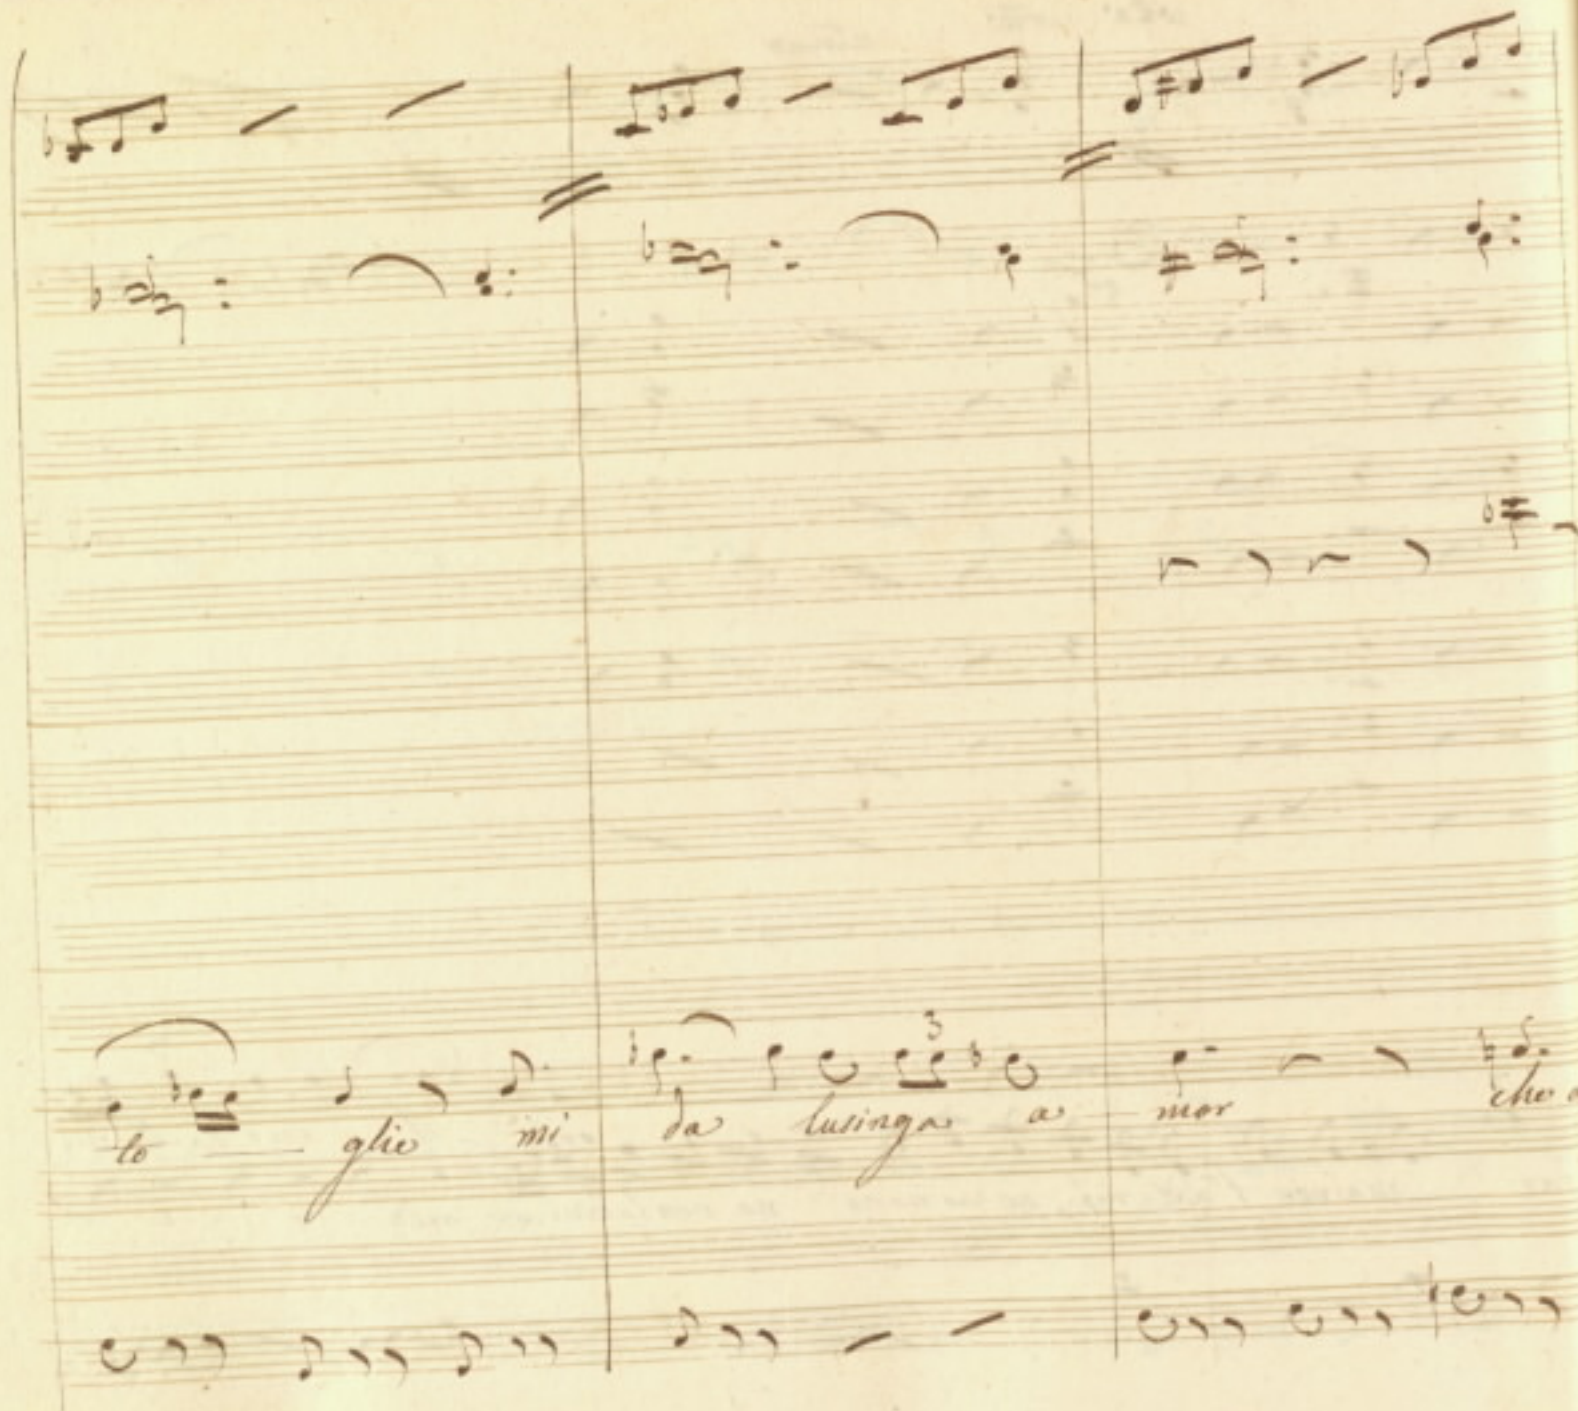 3
to glie mi da lusinga a mor che